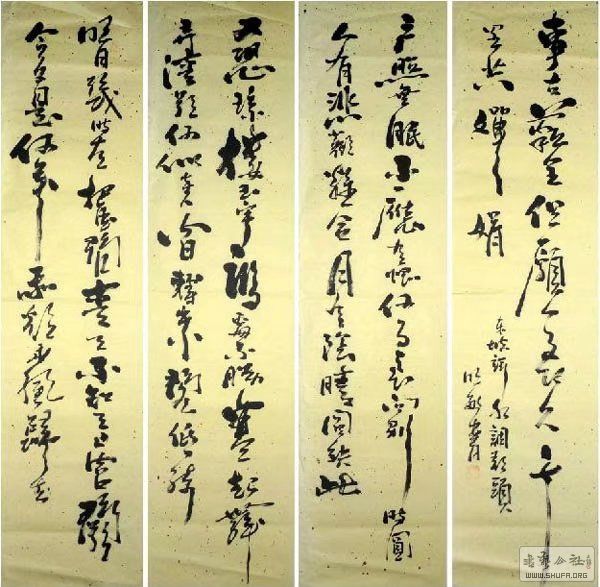 明月幾時有把酒問青天不知天上宮闕
今夕是何年我欲乘風歸去
又恐瓊樓玉宇高處不勝寒起舞
弄清影何似在人間轉朱閣低綺
戶照無眠不應有恨何事長向別時圓
人有悲歡離合月有陰晴圓缺此
事古難全但願人長久千
里共嬋娟
东坡詞水調歌頭
WWW.SHUFA.ORG